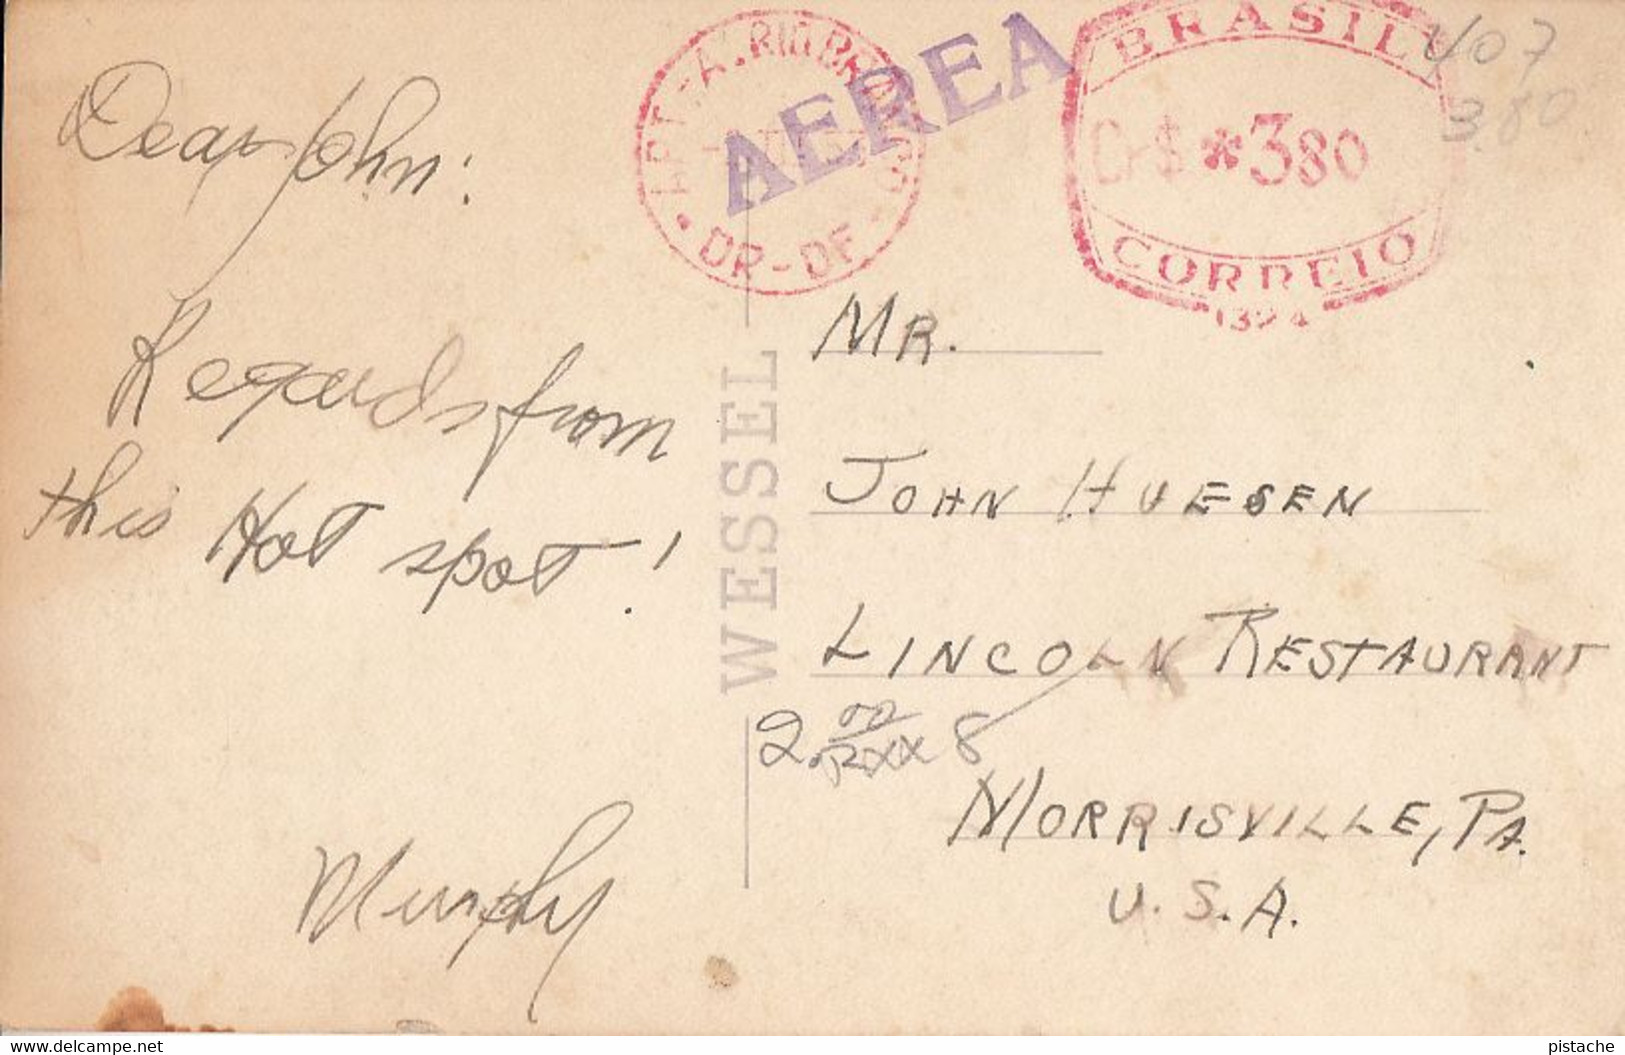 Dear John:
Regards from
this Hot spot!
Murphy
WESSEL
AEREA
DR-DF
BRASIL
Cr$ *380
CORREIO
407
3.80
MR.
JOHN HUESEN
LINCOLN RESTAURANT
MORRISVILLE, PA.
U.S.A.
www.delcampe.net
pistache